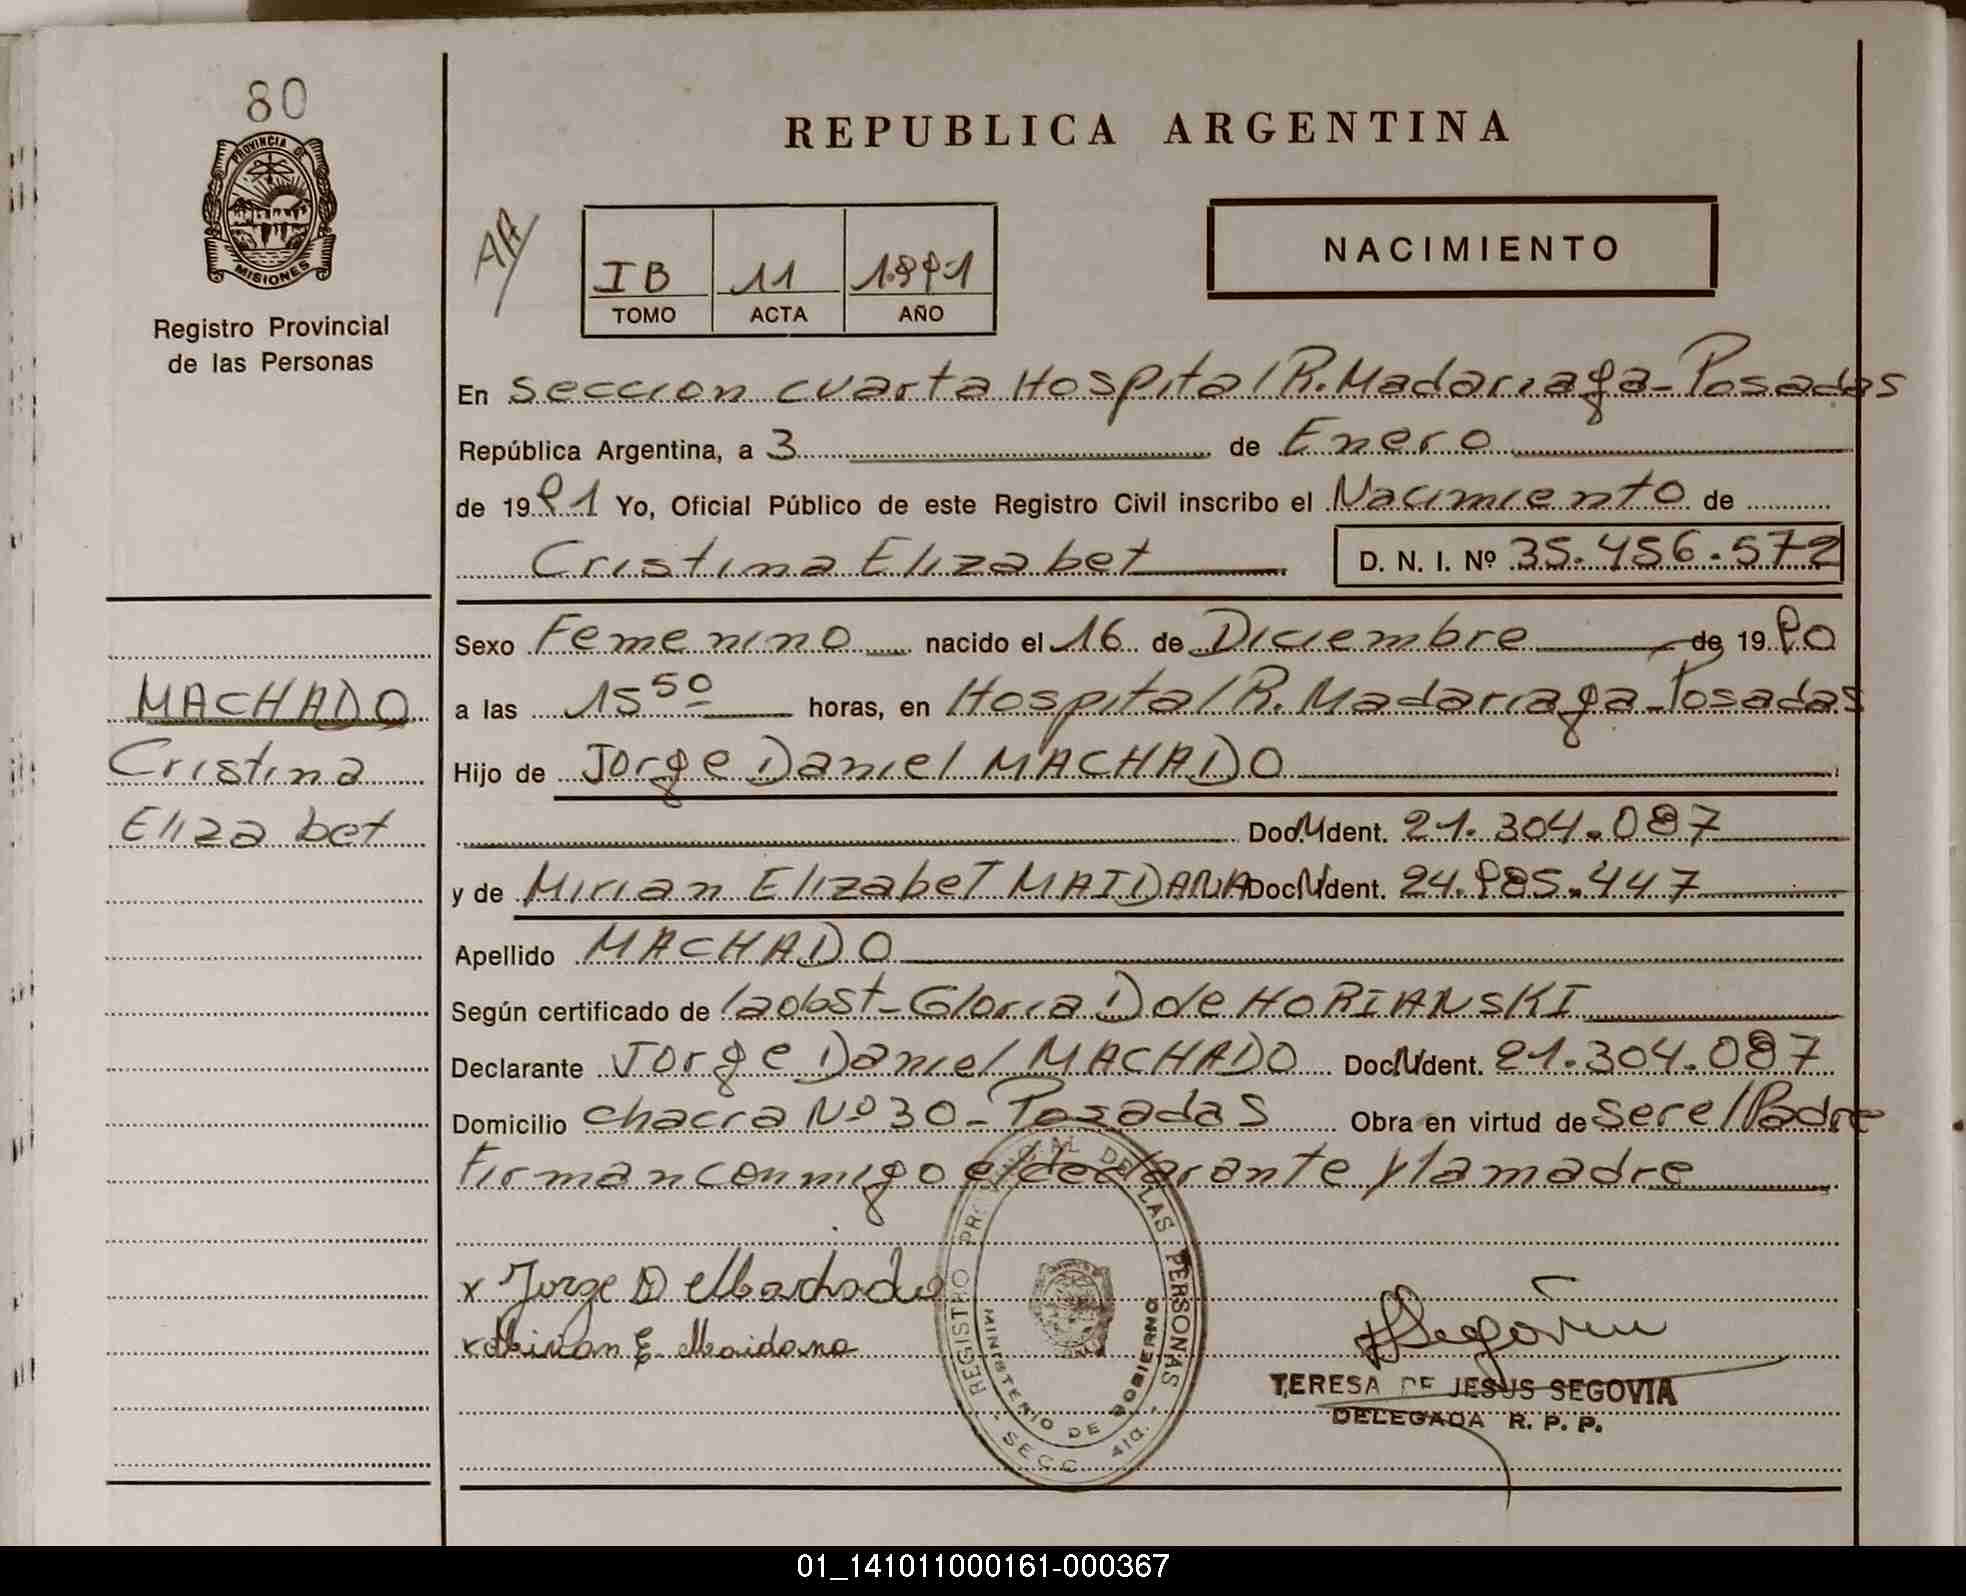 80
PROVINCIA DE
MISIONES
Registro Provincial
de las Personas
REPUBLICA ARGENTINA
IB 11 1.991
TOMO ACTA AÑO
NACIMIENTO
En Seccion cuarta Hospital R. Madariaga - Posadas
República Argentina, a 3 de Enero
de 1991 Yo, Oficial Público de este Registro Civil inscribo el Nacimiento de
Cristina Elizabet D. N. I. Nº 35.456.572
Sexo Femenino nacido el 16 de Diciembre de 1990
a las 15 50 horas, en Hospital R. Madariaga - Posadas
Hijo de Jorge Daniel MACHADO
Doc. Ident. 21.304.087
y de Mirian Elizabet MAIDANA Doc. Ident. 24.985.447
Apellido MACHADO
Según certificado de la obst - Gloria D de HORIANSKI
Declarante Jorge Daniel MACHADO Doc. Ident. 21.304.087
Domicilio chacra Nº 30 - Posadas Obra en virtud de ser el Padre
Firman conmigo el declarante y la madre
x Jorge D Machado
x Mirian E. Maidana
Segovia
TERESA DE JESUS SEGOVIA
DELEGADA R. P. P.
REGISTRO PROVINCIAL DE LAS PERSONAS
MINISTERIO DE GOBIERNO
- SECC. 4ta. -
MACHADO
Cristina
Elizabet
01_141011000161-000367